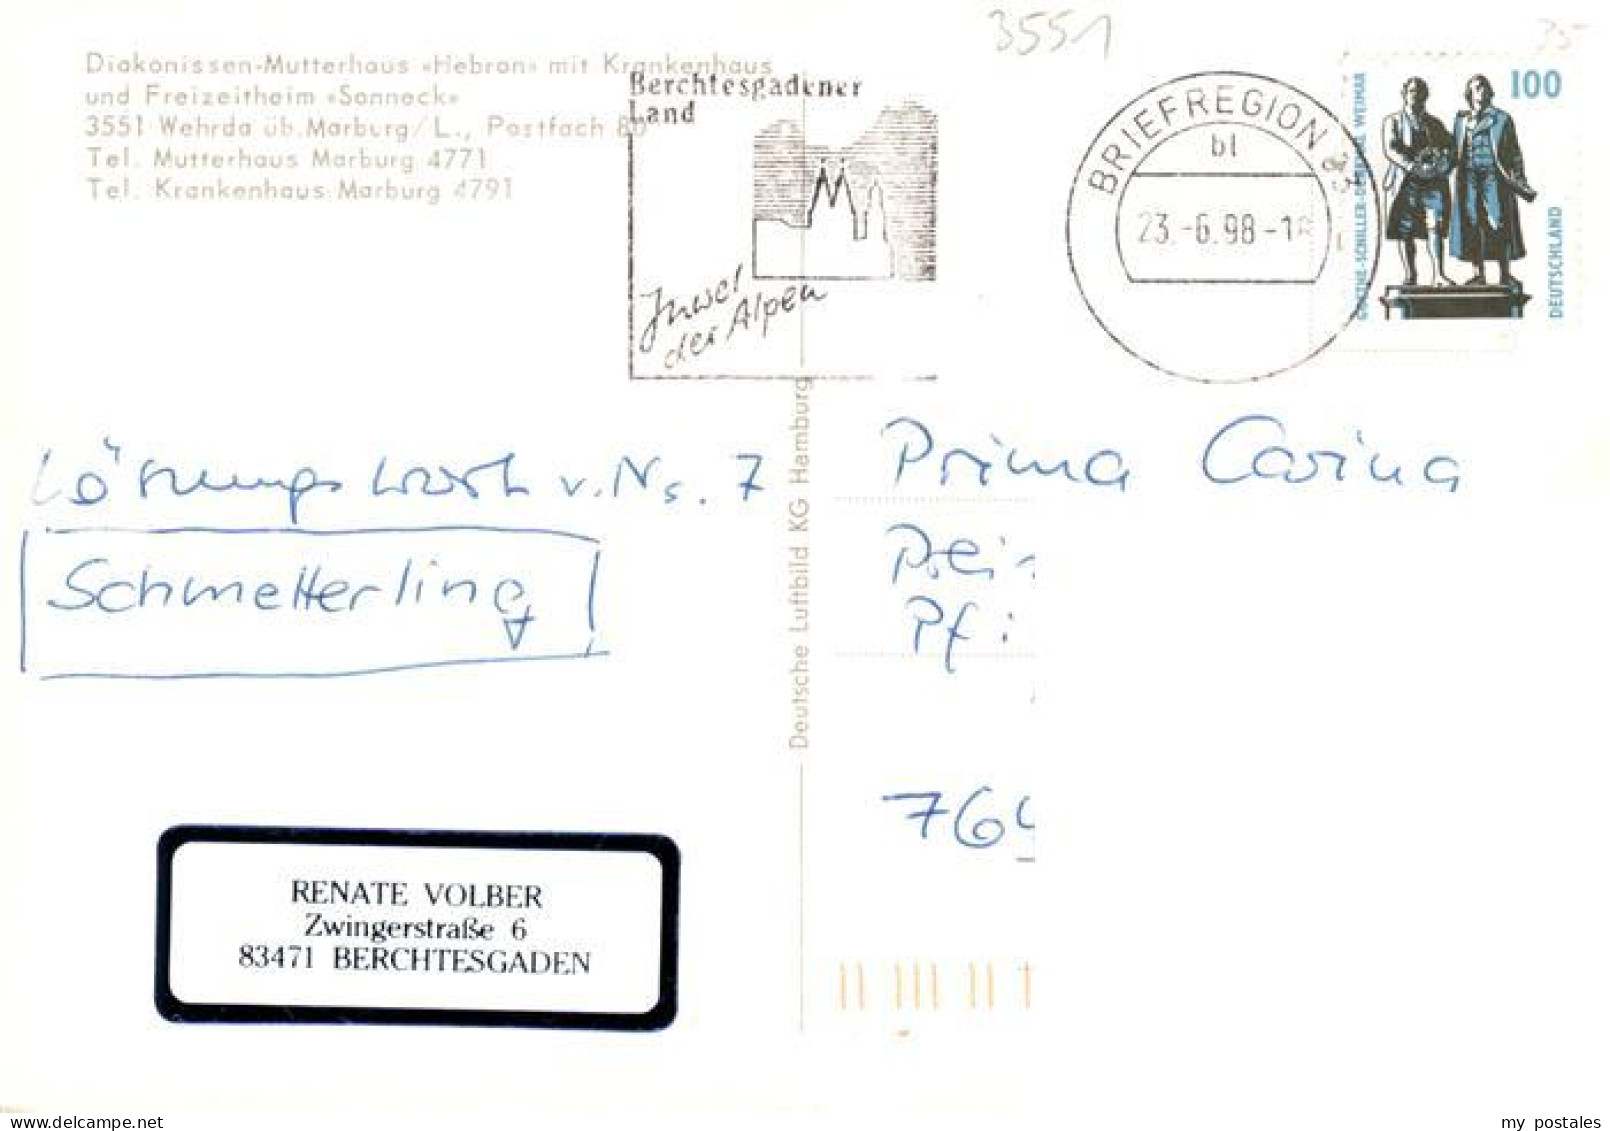 3551
35
Diakonissen-Mutterhaus «Hebron» mit Krankenhaus
und Freizeitheim «Sonneck»
3551 Wehrda üb. Marburg/L., Postfach 80
Tel. Mutterhaus Marburg 4771
Tel. Krankenhaus Marburg 4791
Berchtesgadener
Land
Juwel
der Alpen
BRIEFREGION 83
bl
23.-6.98-12
100
GOETHE-SCHILLER-DENKMAL WEIMAR
DEUTSCHLAND
Lösungswort v. Nr. 7
Schmetterling
Prima Carina
Pf
764
Deutsche Luftbild KG Hamburg
RENATE VOLBER
Zwingerstraße 6
83471 BERCHTESGADEN
my postales